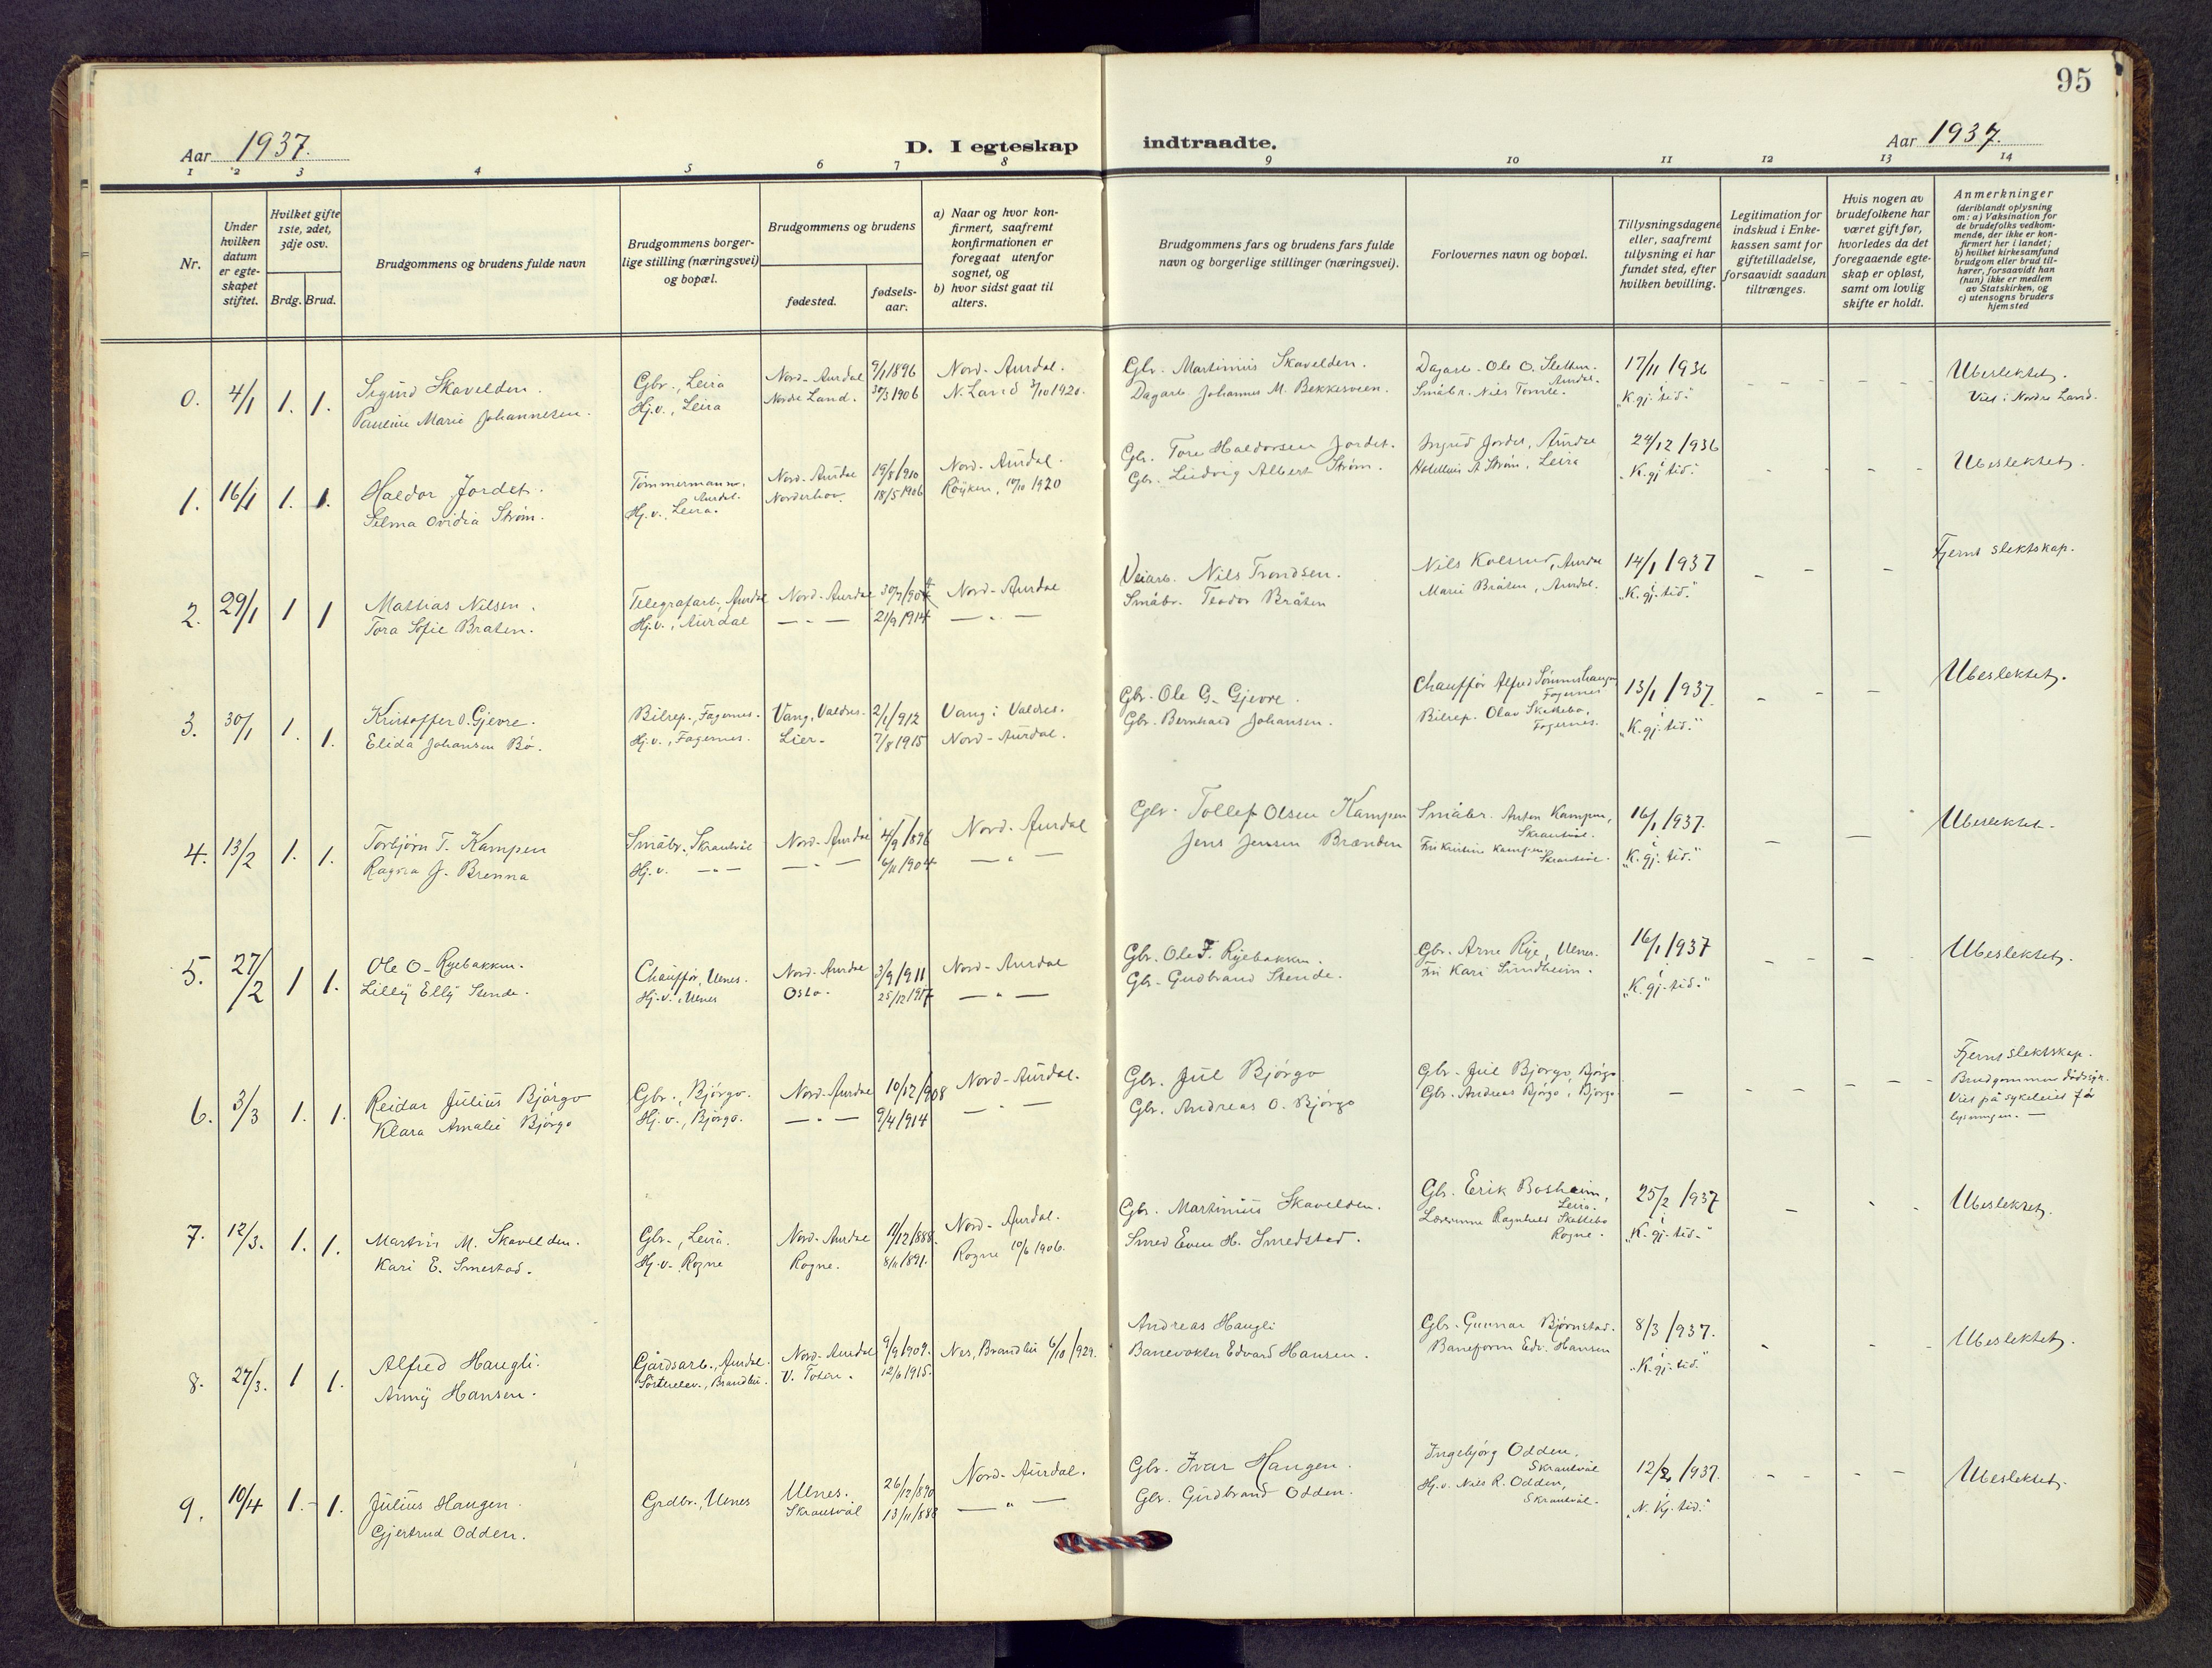 95
Aar 1937.
D. I egteskap indtraadte.
Aar 1937.
1 2 3 4 5 6 7 8 9 10 11 12 13 14
Nr.
Under hvilken datum er egteskapet stiftet.
Hvilket gifte 1ste, 2det, 3dje osv.
Brdg. Brud.
Brudgommens og brudens fulde navn
Brudgommens borgerlige stilling (næringsvei) og bopæl.
Brudgommens og brudens
fødested.
fødselsaar.
a) Naar og hvor konfirmert, saafremt konfirmationen er foregaat utenfor sognet, og
b) hvor sidst gaat til alters.
Brudgommens fars og brudens fars fulde navn og borgerlige stillinger (næringsvei).
Forlovernes navn og bopæl.
Tillysningsdagene eller, saafremt tillysning ei har fundet sted, efter hvilken bevilling.
Legitimation for indskud i Enkekassen samt for giftetilladelse, forsaavidt saadan tiltrænges.
Hvis nogen av brudefolkene har været gift før, hvorledes da det foregaaende egteskap er opløst, samt om lovlig skifte er holdt.
Anmerkninger
(deriblandt oplysning om: a) Vaksination for de brudefolks vedkommende, der ikke er konfirmert her i landet; b) hvilket kirkesamfund brudgom eller brud tilhører, forsaavidt han (hun) ikke er medlem av Statskirken, og c) utensogns bruders hjemsted
0. 4/1 1. 1. Sigurd Skavelden. Gbr., Leira Nord-Aurdal 9/1 1896 Nord-Aurdal. Gbr. Martinius Skavelden. Dagarb. Ole O. Sletten. Aurdal. 17/11 1936 Ubeslektet.
Pauline Marie Johannesen. Hj.v., Leira Nordre Land. 30/3 1906 N. Land 3/10 1920. Dagarb. Johannes M. Bekkesveen. Småbr. Nils Tomte. "K. gj. i tid." Viet i Nordre Land.
1. 16/1 1. 1. Haldor Jordet. Tømmermann, Aurdal. Nord-Aurdal 19/8 1910 Nord-Aurdal. Gbr. Tore Haldorsen Jordet. Ingrid Jordet, Aurdal 24/12 1936 Ubeslektet.
Selma Ovidia Strøm. Hj.v., Leira. Norderhov. 18/5 1906 Røyken, 10/10 1920 Gbr. Ludvig Albert Strøm. Strøm, Leira "K. gj. i tid."
2. 29/1 1 1 Mathias Nilsen. Telegrafarb., Aurdal Nord-Aurdal 30/7 1904 Nord-Aurdal Veiarb. Nils Trondsen. Nils Kolsrud, Aurdal 14/1 1937 Fjernt slektskap.
Tora Sofie Bråten. Hj.v., Aurdal — " — 21/9 1914 — " — Småbr. Teodor Bråten Marie Bråten, Aurdal. "K. gj. i tid."
3. 30/1 1. 1. Kristoffer O. Gjevre. Bilrep., Fagernes. Vang, Valdres. 2/1 1912 Vang i Valdres. Gbr. Ole G. Gjevre. Chauffør Alfred Fagernes 13/1 1937. Ubeslektet.
Elida Johansen Bø. Hj.v., Fagernes. Lier. 7/8 1915 Nord-Aurdal. Gbr. Bernhard Johansen. Bilrep. Olav Skattebo, Fagernes. "K. gj. i tid."
4. 13/2 1. 1. Torbjørn T. Kampen Småbr., Skrautvål Nord-Aurdal 4/9 1896 Nord-Aurdal Gbr. Tollef Olsen Kampen Småbr. Anton Kampen, Skrautvål. 16/1 1937. Ubeslektet.
Ragna J. Brenna Hj.v. — " — — " — 6/11 1904 — " — Jens Jensen Brænden Frk Kristine Kampen Skrautvål. "K. gj. i tid."
5. 27/2 1 1. Ole O. Ryebakken. Chauffør, Ulnes. Nord-Aurdal 3/9 1911 Nord-Aurdal Gbr. Ole F. Ryebakken. Gbr. Arne Rye, Ulnes. 16/1 1937 Ubeslektet.
Lilly Elly Stende. Hj.v., Ulnes Oslo. 25/12 1917 — " — Gbr. Gudbrand Stende. Frk Kari Sundheim. "K. gj. i tid."
6. 3/3 1. 1. Reidar Julius Bjørgo Gbr., Bjørgo. Nord-Aurdal 10/12 1908 Nord-Aurdal. Gbr. Jul Bjørgo Gbr. Jul Bjørgo, Bjørgo — Fjernt slektskap.
Klara Amalie Bjørgo Hj.v., Bjørgo. — " — 9/4 1914 — " — Gbr. Andreas O. Bjørgo Gbr. Andreas Bjørgo, Bjørgo Brudgommen dødssyk. Viet på sykeleiet før lysningen. —
7. 12/3. 1. 1. Martin M. Skavelden. Gbr., Leira. Nord-Aurdal 11/12 1888. Nord-Aurdal. Gbr. Martinius Skavelden. Gbr. Erik Bosheim, Leira. 25/2 1937 Ubeslektet.
Kari E. Smestad. Hj.v. Rogne Rogne. 8/11 1891. Rogne 10/6 1906. Smed Even H. Smedstad. Lærerinne Ragnhild Skattebo Rogne. "K. gj. i tid."
8. 27/3. 1 1. Alfred Haugli. Gårdsarb., Aurdal. Nord-Aurdal 9/9 1909. Nes, Brandbu 6/10 1929. Andreas Haugli Gbr. Gunnar Bjørnstad. 8/3 1937. Ubeslektet.
Anny Hansen. Brandbu. V. Toten. 12/6 1915. Banevokter Edvard Hansen. Baneform. Edv. Hansen "K. gj. i tid."
9. 10/4 1. 1. Julius Haugen. Grdbr., Ulnes Ulnes. 26/12 1890 Nord-Aurdal. Gbr. Ivar Haugen. Ingebjørg Odden, Skrautvål 12/2 1937. Ubeslektet.
Gjertrud Odden. Skrautvål 13/11 1888 — " — Gbr. Gudbrand Odden. Hj.v. Nils R. Odden, Skrautvål. "N. Kj. i tid."